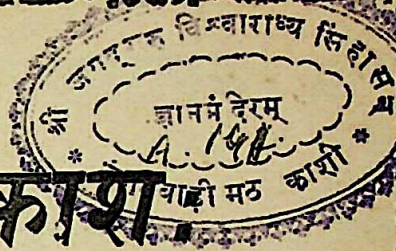 श्री जगद्गुरु विश्वाराध्य सिंहासन
ज्ञानमंदिरम्
जंगमवाडी मठ काशी
काश.